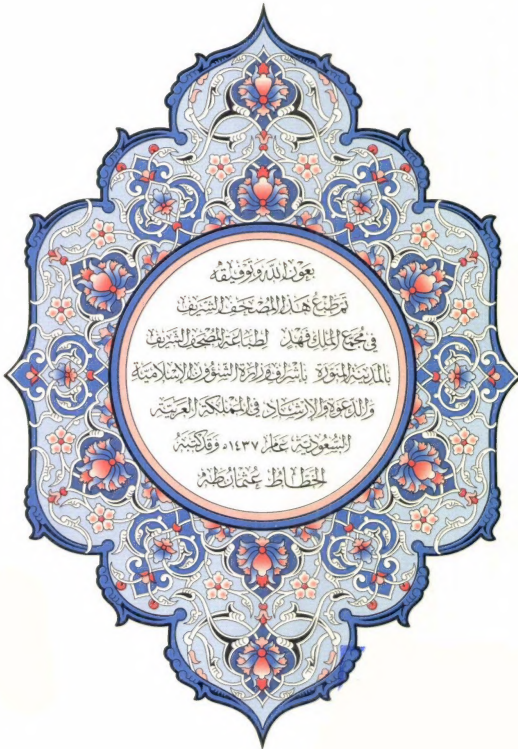 بعون الله وتوفيقه
تم طبع هذا المصحف الشريف
في مجمع الملك فهد لطباعة المصحف الشريف
بالمدينة المنورة بإشراف وزارة الشؤون الإسلامية
والدعوة والإرشاد في المملكة العربية
السعودية عام ١٤٣٧ه‍ وقد كتبه
الخطاط عثمان طه